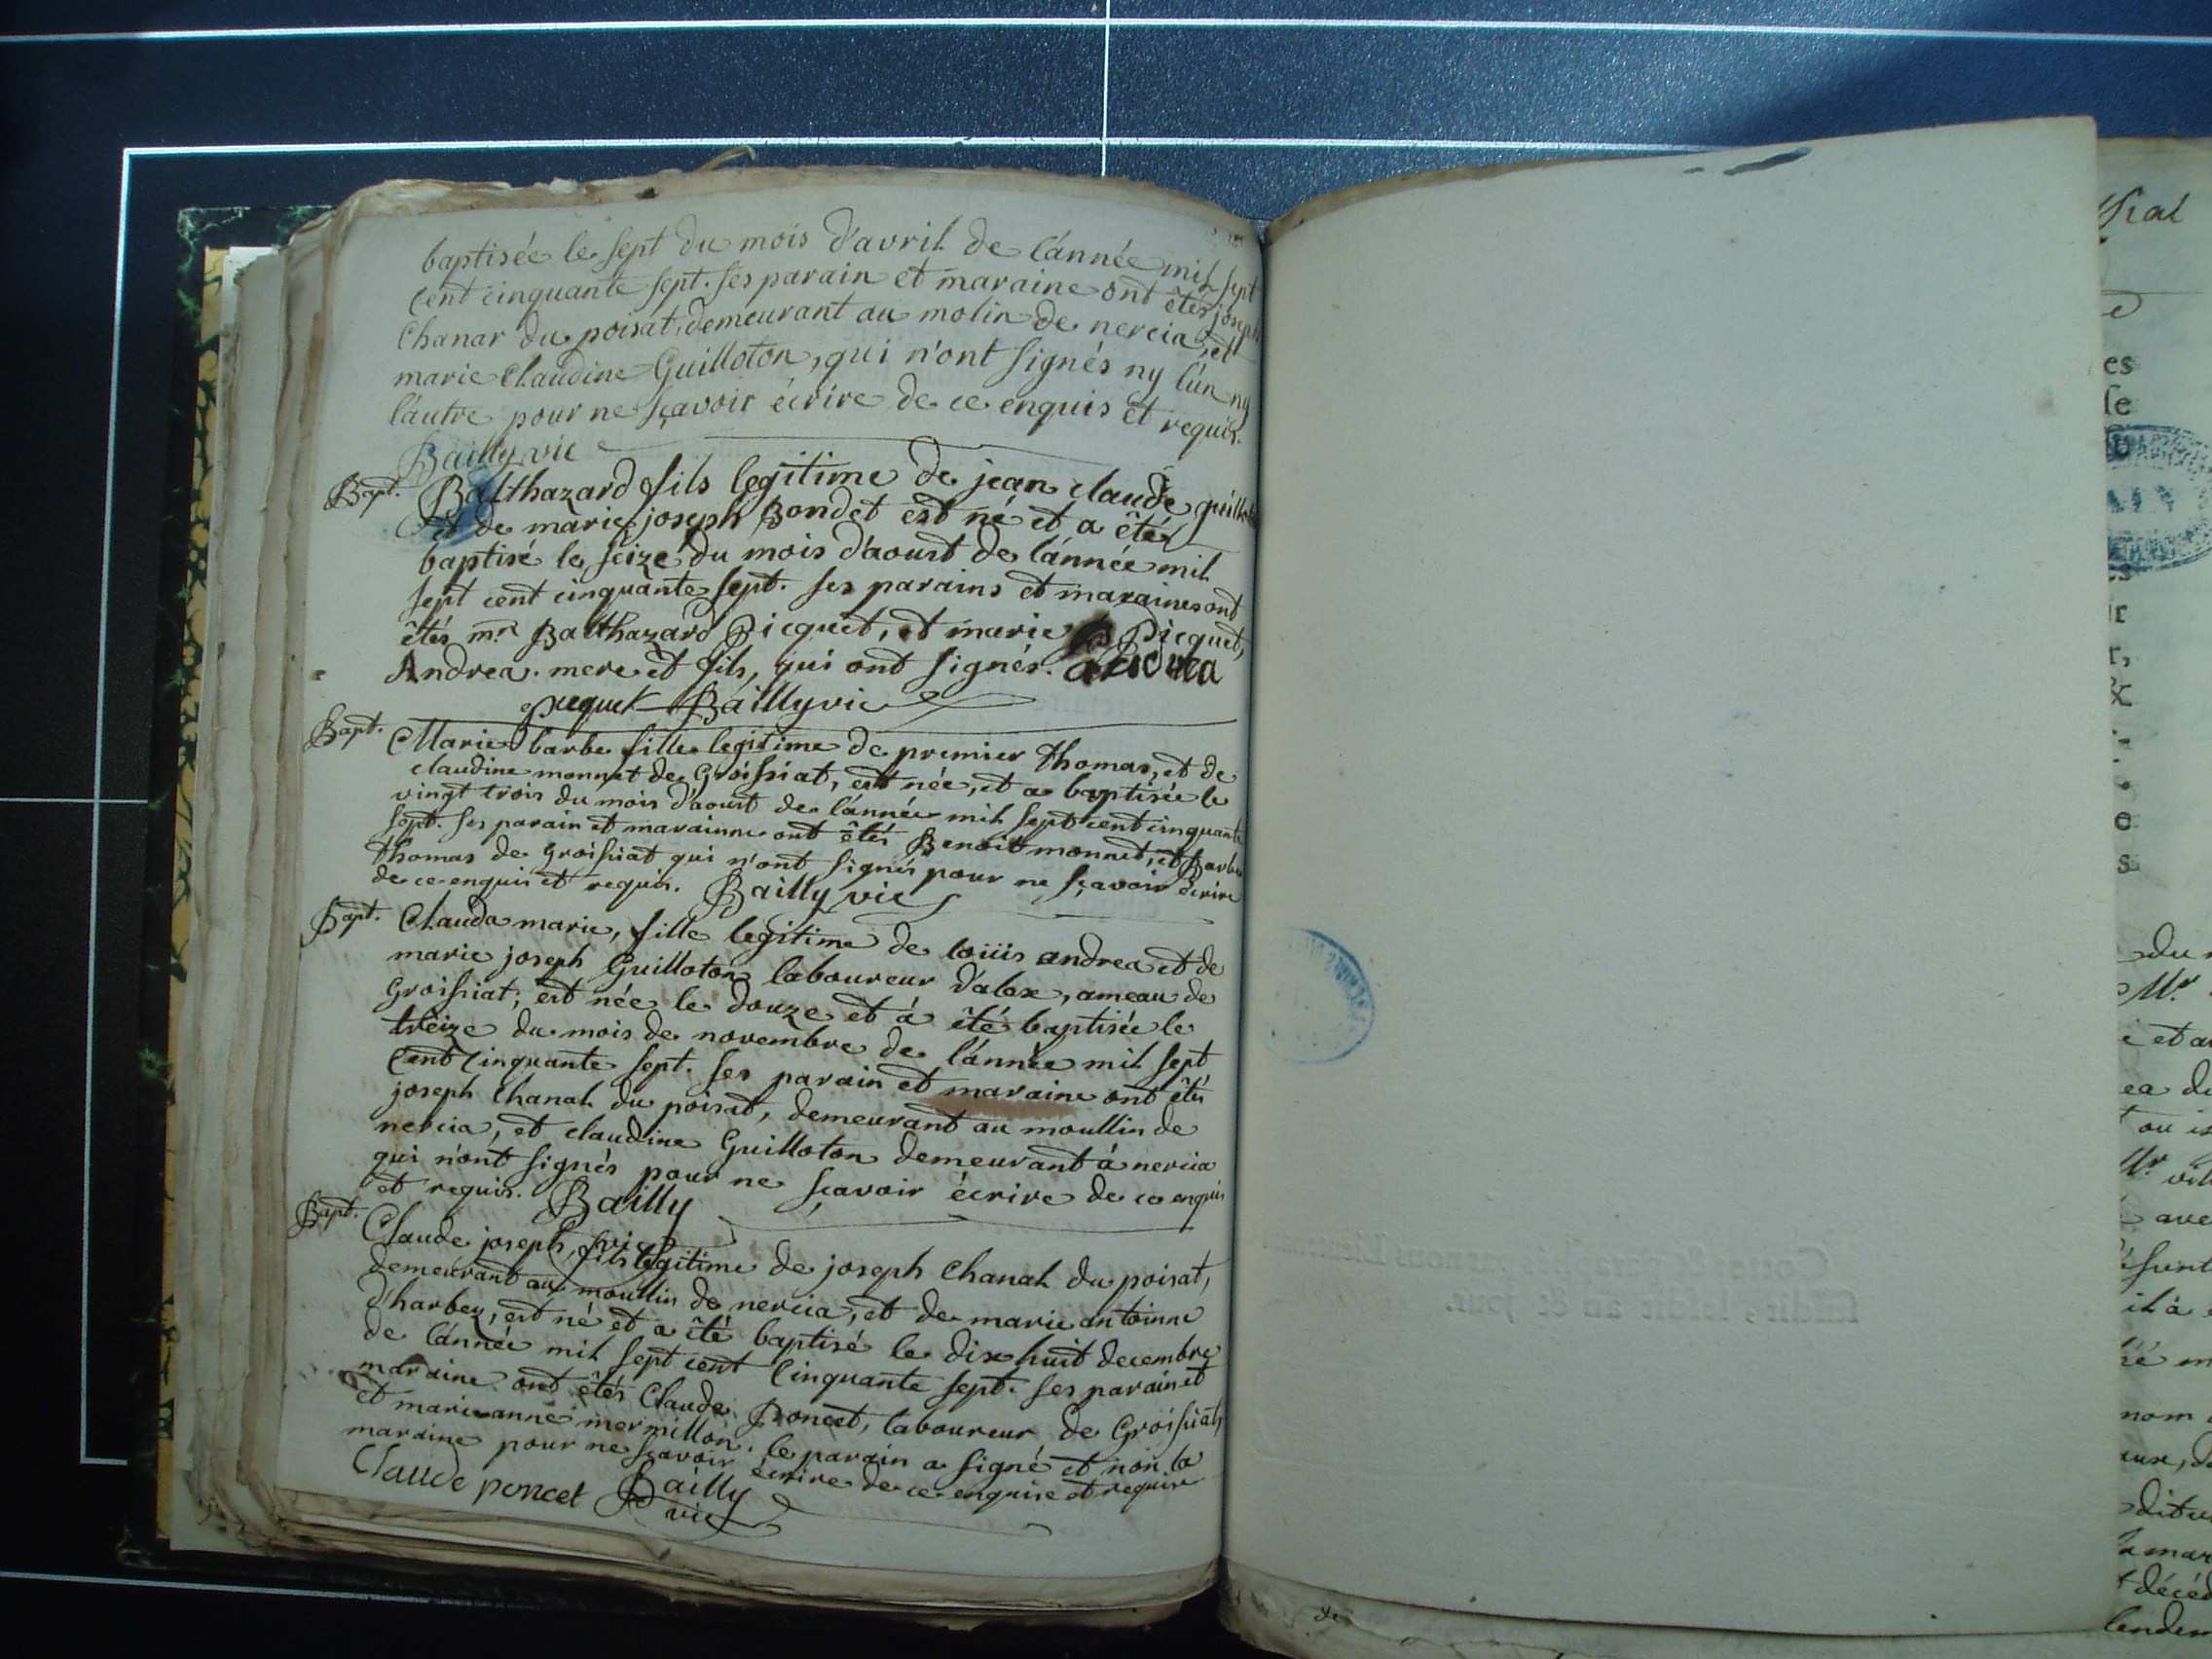 baptisée le sept du mois d'avril de l'année mil sept
cent cinquante sept. ses parain et maraine ont êtés joseph
Chanar du poisat, demeurant au molin de nercia, et
marie Claudine Guilloton, qui n'ont signés ny l'ún ny
l'autre pour ne sçavoir écrire de ce enquis et requis.
Bailly vic
Bapt. Balthazard fils legitime de jean claude
et de marie joseph Bondet est né et a êtés
baptisé le seize du mois d'aoust de l'année mil
sept cent cinquante sept. ses parains et maraines ont
êtés mr. Balthazard Picquet, et marie Picquet,
Andrea. mere et fils, qui ont signés. andrea
picquet Bailly vic
Bapt. Marie barbe fille legitime de premier thomas, et de
claudine monnet de Groissiat, est née, et a baptisée le
vingt trois du mois d'aoust de l'année mil sept cent cinquante
sept. ses parain et marainne ont êtés Benoit monnet, et Barbe
thomas de Groissiat qui n'ont signés pour ne sçavoir écrire
de ce enquis et requis. Bailly vic
Bapt. Clauda marie, fille legitime de loüis andrea et de
marie joseph Guilloton laboureur d'alex, ameau de
Groissiat; est née le douze et á êté baptisée le
treize du mois de novembre de l'année mil sept
Cent Cinquante sept. ses parain et maraine ont êtés
joseph Chanal du poisat, demeurant au moullin de
nercia, et claudine Guilloton demeurant á nercia
qui n'ont signés pour ne sçavoir écrire de ce enquis
et requis. Bailly
vic
Bapt. Claude joseph, fils legitime de joseph Chanal du poisat,
demeurant au moullin de nercia, et de marie antoinne
d'harbey, est né et a êté baptisé le dix huit decembre
de l'année mil sept cent Cinquante sept. ses parain et
maraine ont êtés Claude Poncet, laboureur de Groissiat,
et marie anne mermillon. le parain a signé et non la
maraine pour ne sçavoir écrire de ce enquise et requise
Claude poncet Bailly
vic